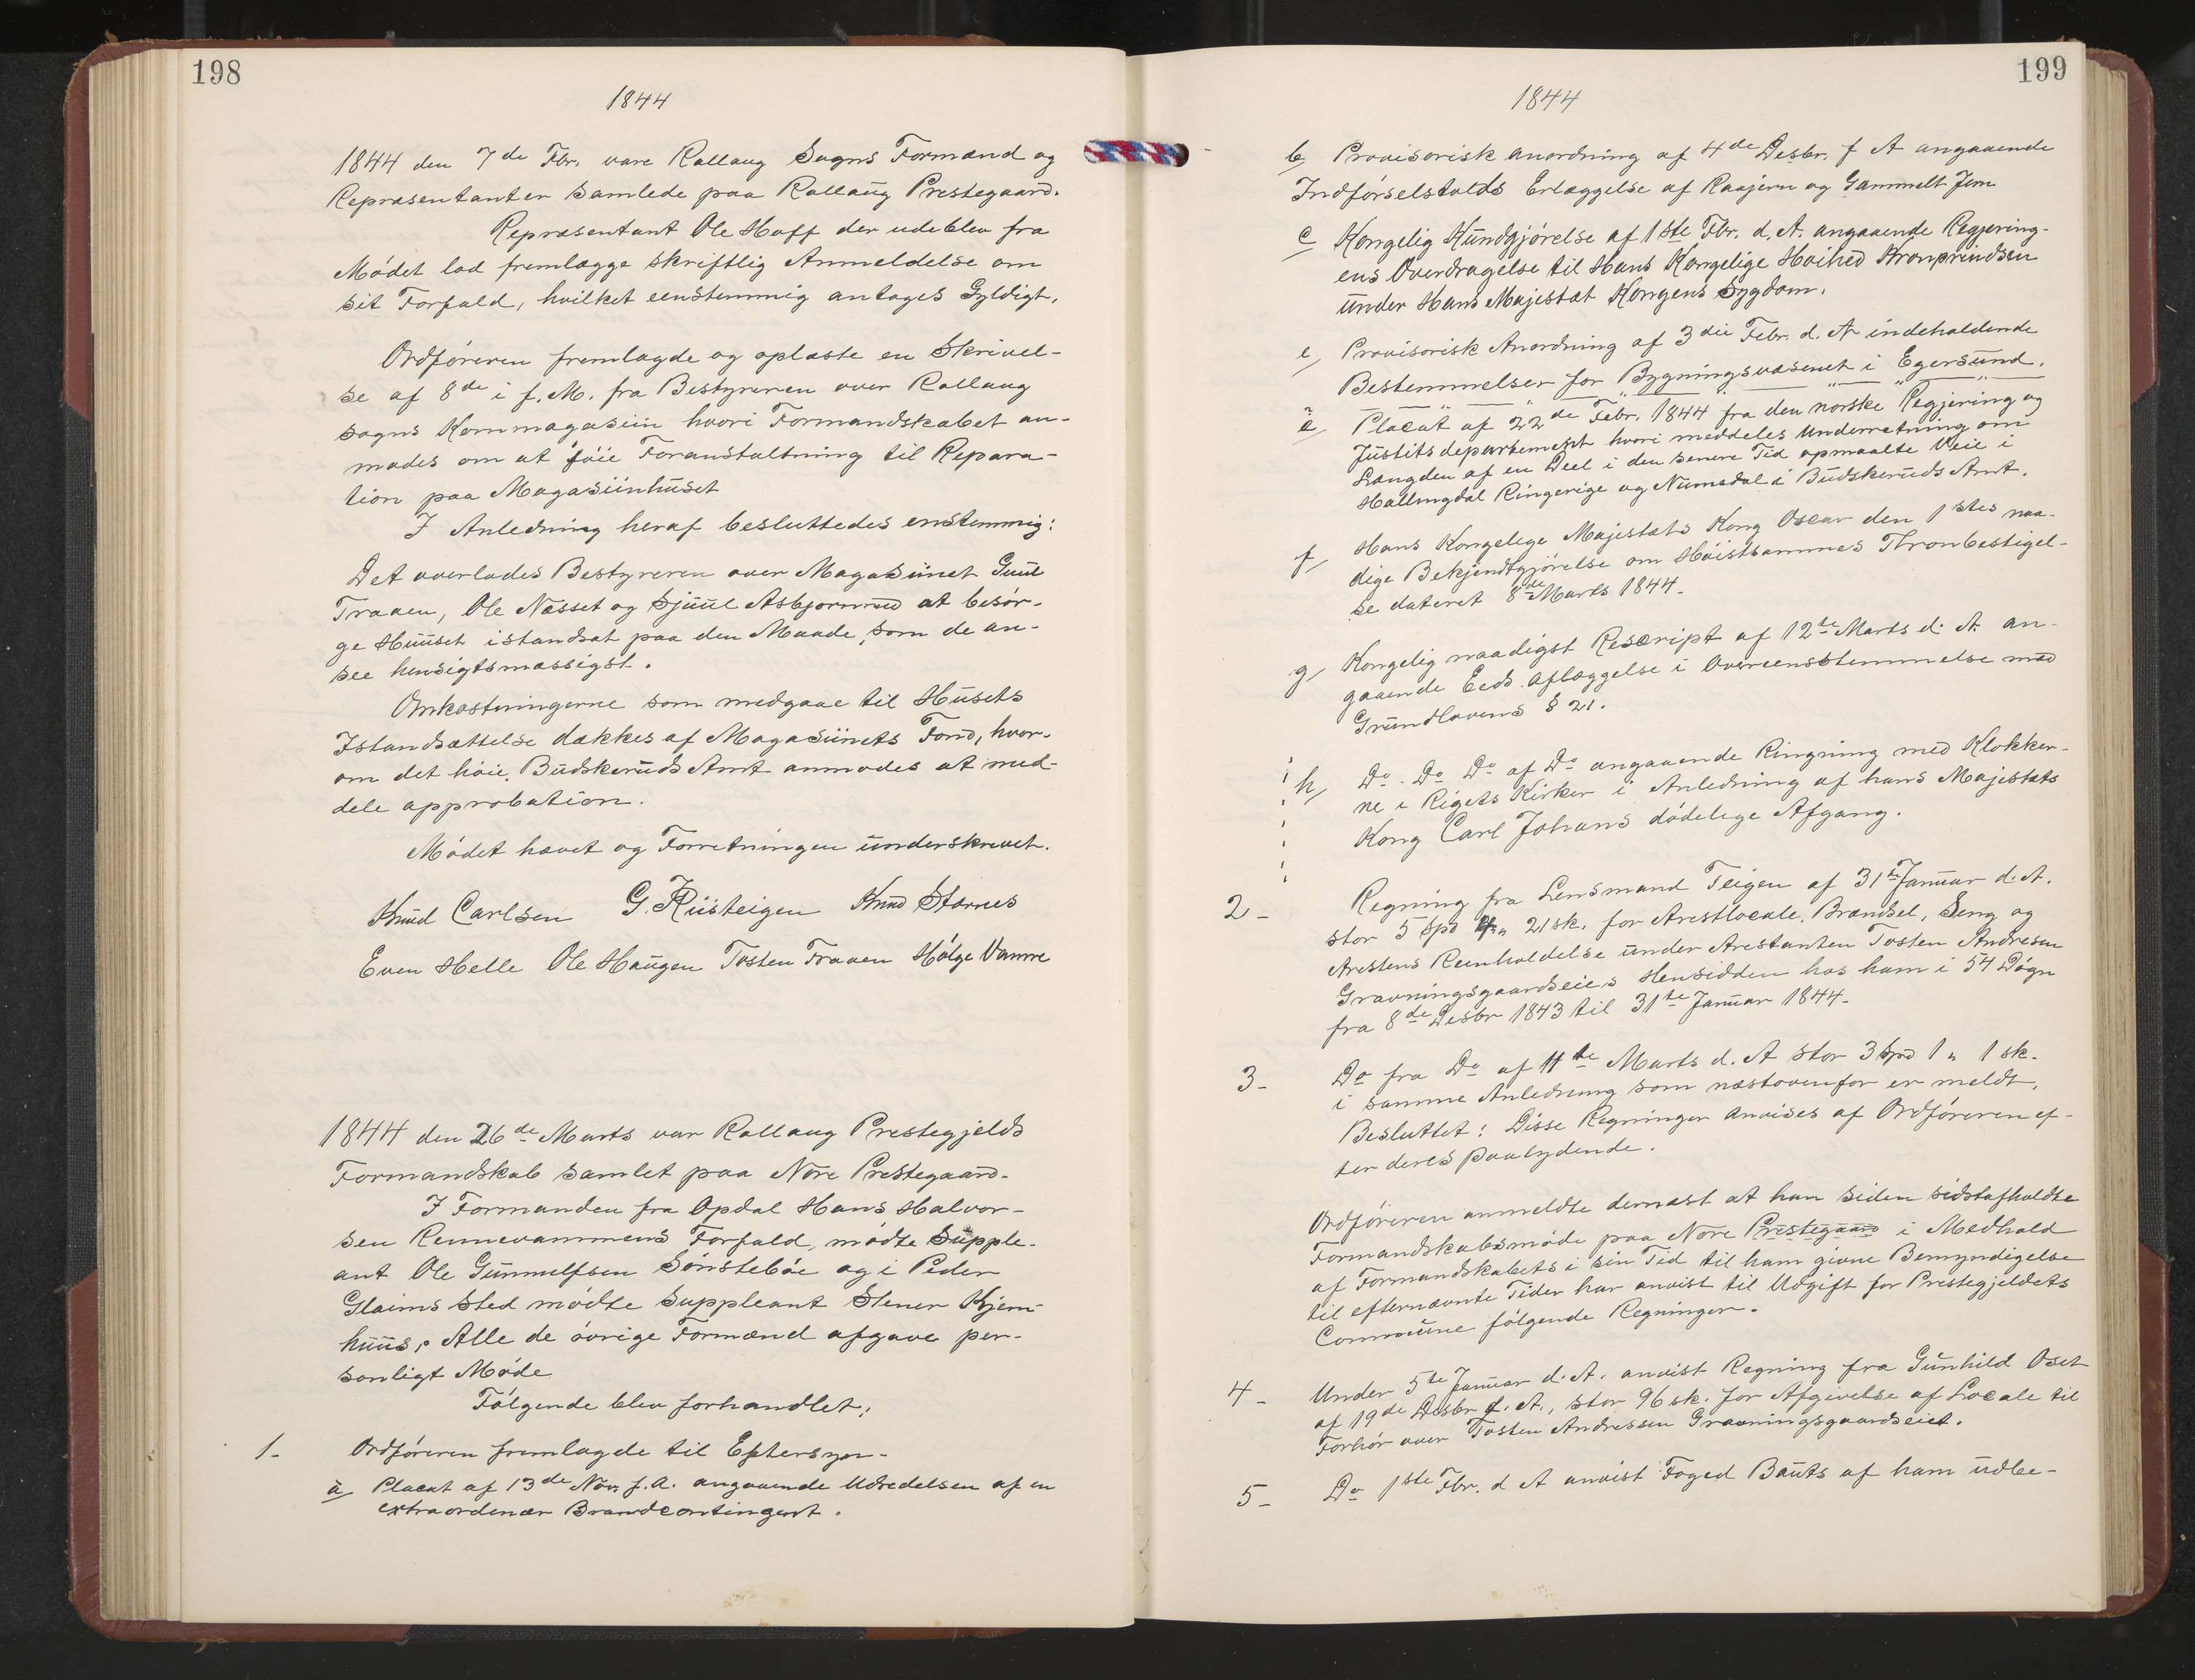 198
1844
1844 den 7de Fbr. vare Rollaug Sogns Formænd og
Repræsentanter samlede paa Rollaug Prestegaard.
Repræsentant Ole Hoff der udeblev fra
Mødet lod fremlægge skriftlig Anmeldelse om
sit Forfald, hvilket eenstemmig antages Gyldigt.
Ordføreren fremlagde og oplæste en Skrivel-
se af 8de i f. M. fra Bestyreren over Rollaug
sogns Kornmagasiin hvori Formandskabet an-
modes om at føie Foranstaltning til Repara-
tion paa Magasiinhuset
I Anledning heraf besluttedes enstemmig:
Det overlades Bestyreren over Magasinet Guul
Traaen, Ole Næsset og Sjuul Asbjornrud at besør-
ge Huuset istandsat paa den Maade som de an-
see hensigtsmæssigst.
Omkostningerne som medgaae til Husets
Istandsættelse dækkes af Magasiinets Fond, hvor-
om det høie Budskeruds Amt anmodes at med-
dele approbation.
Mødet hævet og Forretningen underskrevet.
Knud Carlsen G. K Ruisteigen Knud Størnes
Even Helle Ole Haugen Tosten Fraaen Hølge Vamre
1844 den 26de Marts var Rollaug Prestegjelds
Formandskab samlet paa Nore Prestegaard.
I Formanden fra Opdal Hans Halvor-
sen Rennevammens Forfald, mødte Supple-
ant Ole Gunnulfsen Sønstebøe og i Peder
Glaims Sted mødte Suppleant Stener Kjem-
huus, Alle de øvrige Formænd afgave per-
sonligt Møde
Følgende blev forhandlet;
1- Ordføreren fremlagde til Eftersyn-
a, Placat af 13de Nov. f. A. angaaende Udredelsen af en
extraordenær Brandcontingent.
199
1844
b, Provisorisk anordning af 4de Desbr. f A angaaende
Indførselstolds Erlæggelse af Raajern og Gammelt Jern
c Kongelig Kundgjørelse af 1ste Fbr. d. A. angaaende Regjering-
ens Overdragelse til Hans Kongelige Høihed Kronprindsen
under Hans Majestæt Kongens Sygdom.
e, Provisorisk Anordning af 3die Febr. d. A indeholdende
Bestemmelser for Bygningsvæsenet i Egersund.
e, Placat af 22de Febr. 1844 fra den norske Regjering og
Justitsdepartementet hvori meddeles Underretning om
Længden af en Deel i den senere Tid opmaalte Veie i
Hallingdal Ringerige og Numedal i Budskeruds Amt.
f, Hans Kongelege Majestæts Kong Oscar den 1stes naa-
dige Bekjendtgjørelse om Høistsammes Thronbestigel-
se dateret 8de Marts 1844.
g, Kongelig naadigst Rescript af 12te Marts d. A. an-
gaaende Eeds Aflæggelse i Overeensstemmelse med
Grundlovens § 21.
h, Do. Do Do af Do angaaende Ringning med Klokker-
ne i Rigets Kirker i Anledning af hans Majestæts
Kong Carl Johans dødelege Afgang.
2- Regning fra Lensmand Teigen af 31te Januar d. A.
stor 5 Spd 4 „ 21 sk. for Arestlocale, Brændsel, Seng og
Arestens Reenholdelse under Arestanten Tosten Andresen
Gravningsgaardseies Hensidden hos ham i 54 Døgn
fra 8de Desbr 1843 til 31te Januar 1844-
3- Do fra Do af 11te Marts d. A stor 3 Spd 1 „ 1 sk.
i samme Anledning som næstovenfor er meldt,
Besluttet: Disse Regninger anvises af Ordføreren ef-
ter deres paalydende.
Ordføreren anmeldte dernæst at han siden sidstafholdte
Formandskabsmøde paa Nore Prestegaard i Medhold
af Formandskabets i sin Tid til ham givne Bemyndigelse
til efternævnte Tider har anvist til Udgift for Prestegjeldets
Commune følgende Regninger.
4- Under 5te Januar d. A. anvist Regning fra Gunhild Oset
af 19de Desbr f. A., stor 96 sk. for Afgivelse af Locale til
Forhør over Tosten Andressen Gravningsgaardseiet.
5- Do 1ste Fbr. d A anvist Foged Bauts af ham udbe-